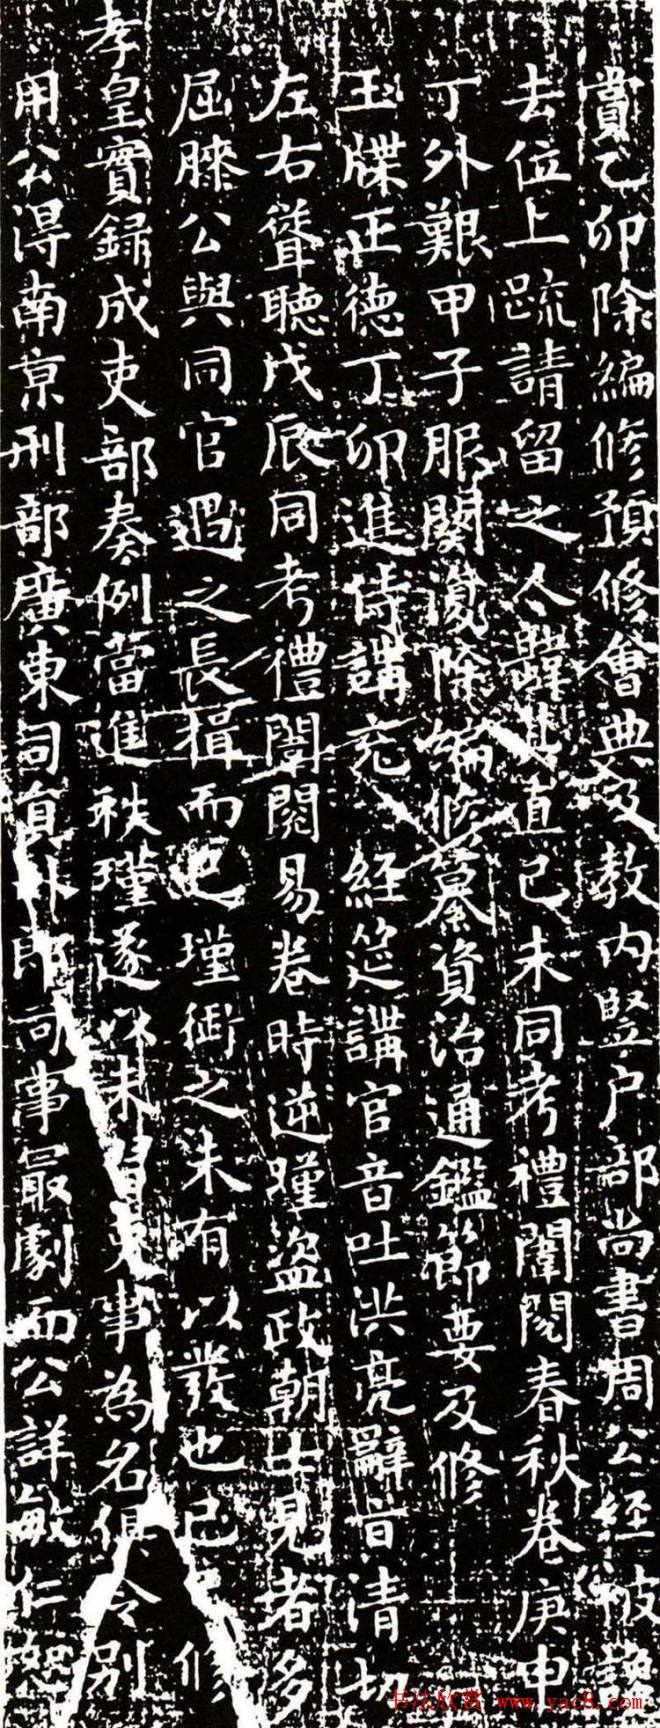 賞乙卯除編修預修會典及教內豎户部尚書周公經被
去位上疏請留之人韙其直己未同考禮闈閱春秋卷庚申
丁外艱甲子服闋復除編修纂資治通鑑節要及修
玉牒正德丁卯進侍講充經筵講官音吐洪亮辭旨清
左右聳聽戊辰同考禮闈閱易卷時逆瑾盜政朝士見者多
屈膝公與同官遇之長揖而已瑾銜之未有以發也己修
孝皇實錄成吏部奏例當進秩瑾遂以未習吏事為名俱令別
用公得南京刑部廣東司員外郎司事最劇而公詳敏仁恕
书法欣赏 www.yac8.com